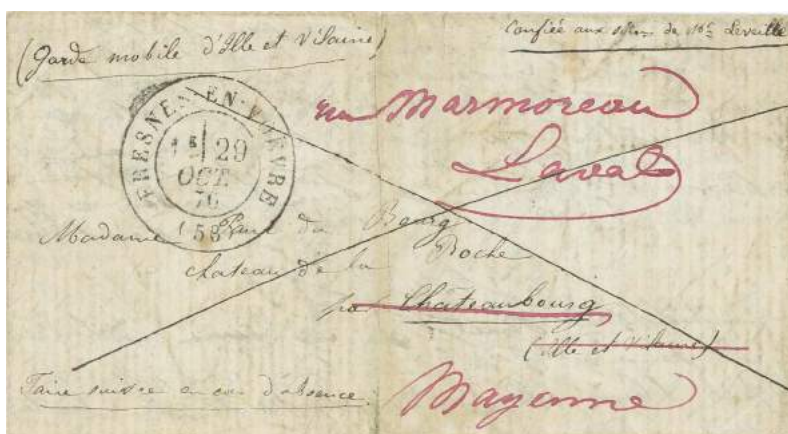 (Garde mobile d'Ille et Vilaine)
Confiée aux soins de Mr Leveillé
rue Marmoreau
Laval
FRESNES-EN-WOEVRE
1E 29
OCT.
70
(53)
Madame Paul du Bourg
chateau de la Roche
par Chateaubourg
(Ille et Vilaine)
Faire suivre en cas d'absence
Mayenne